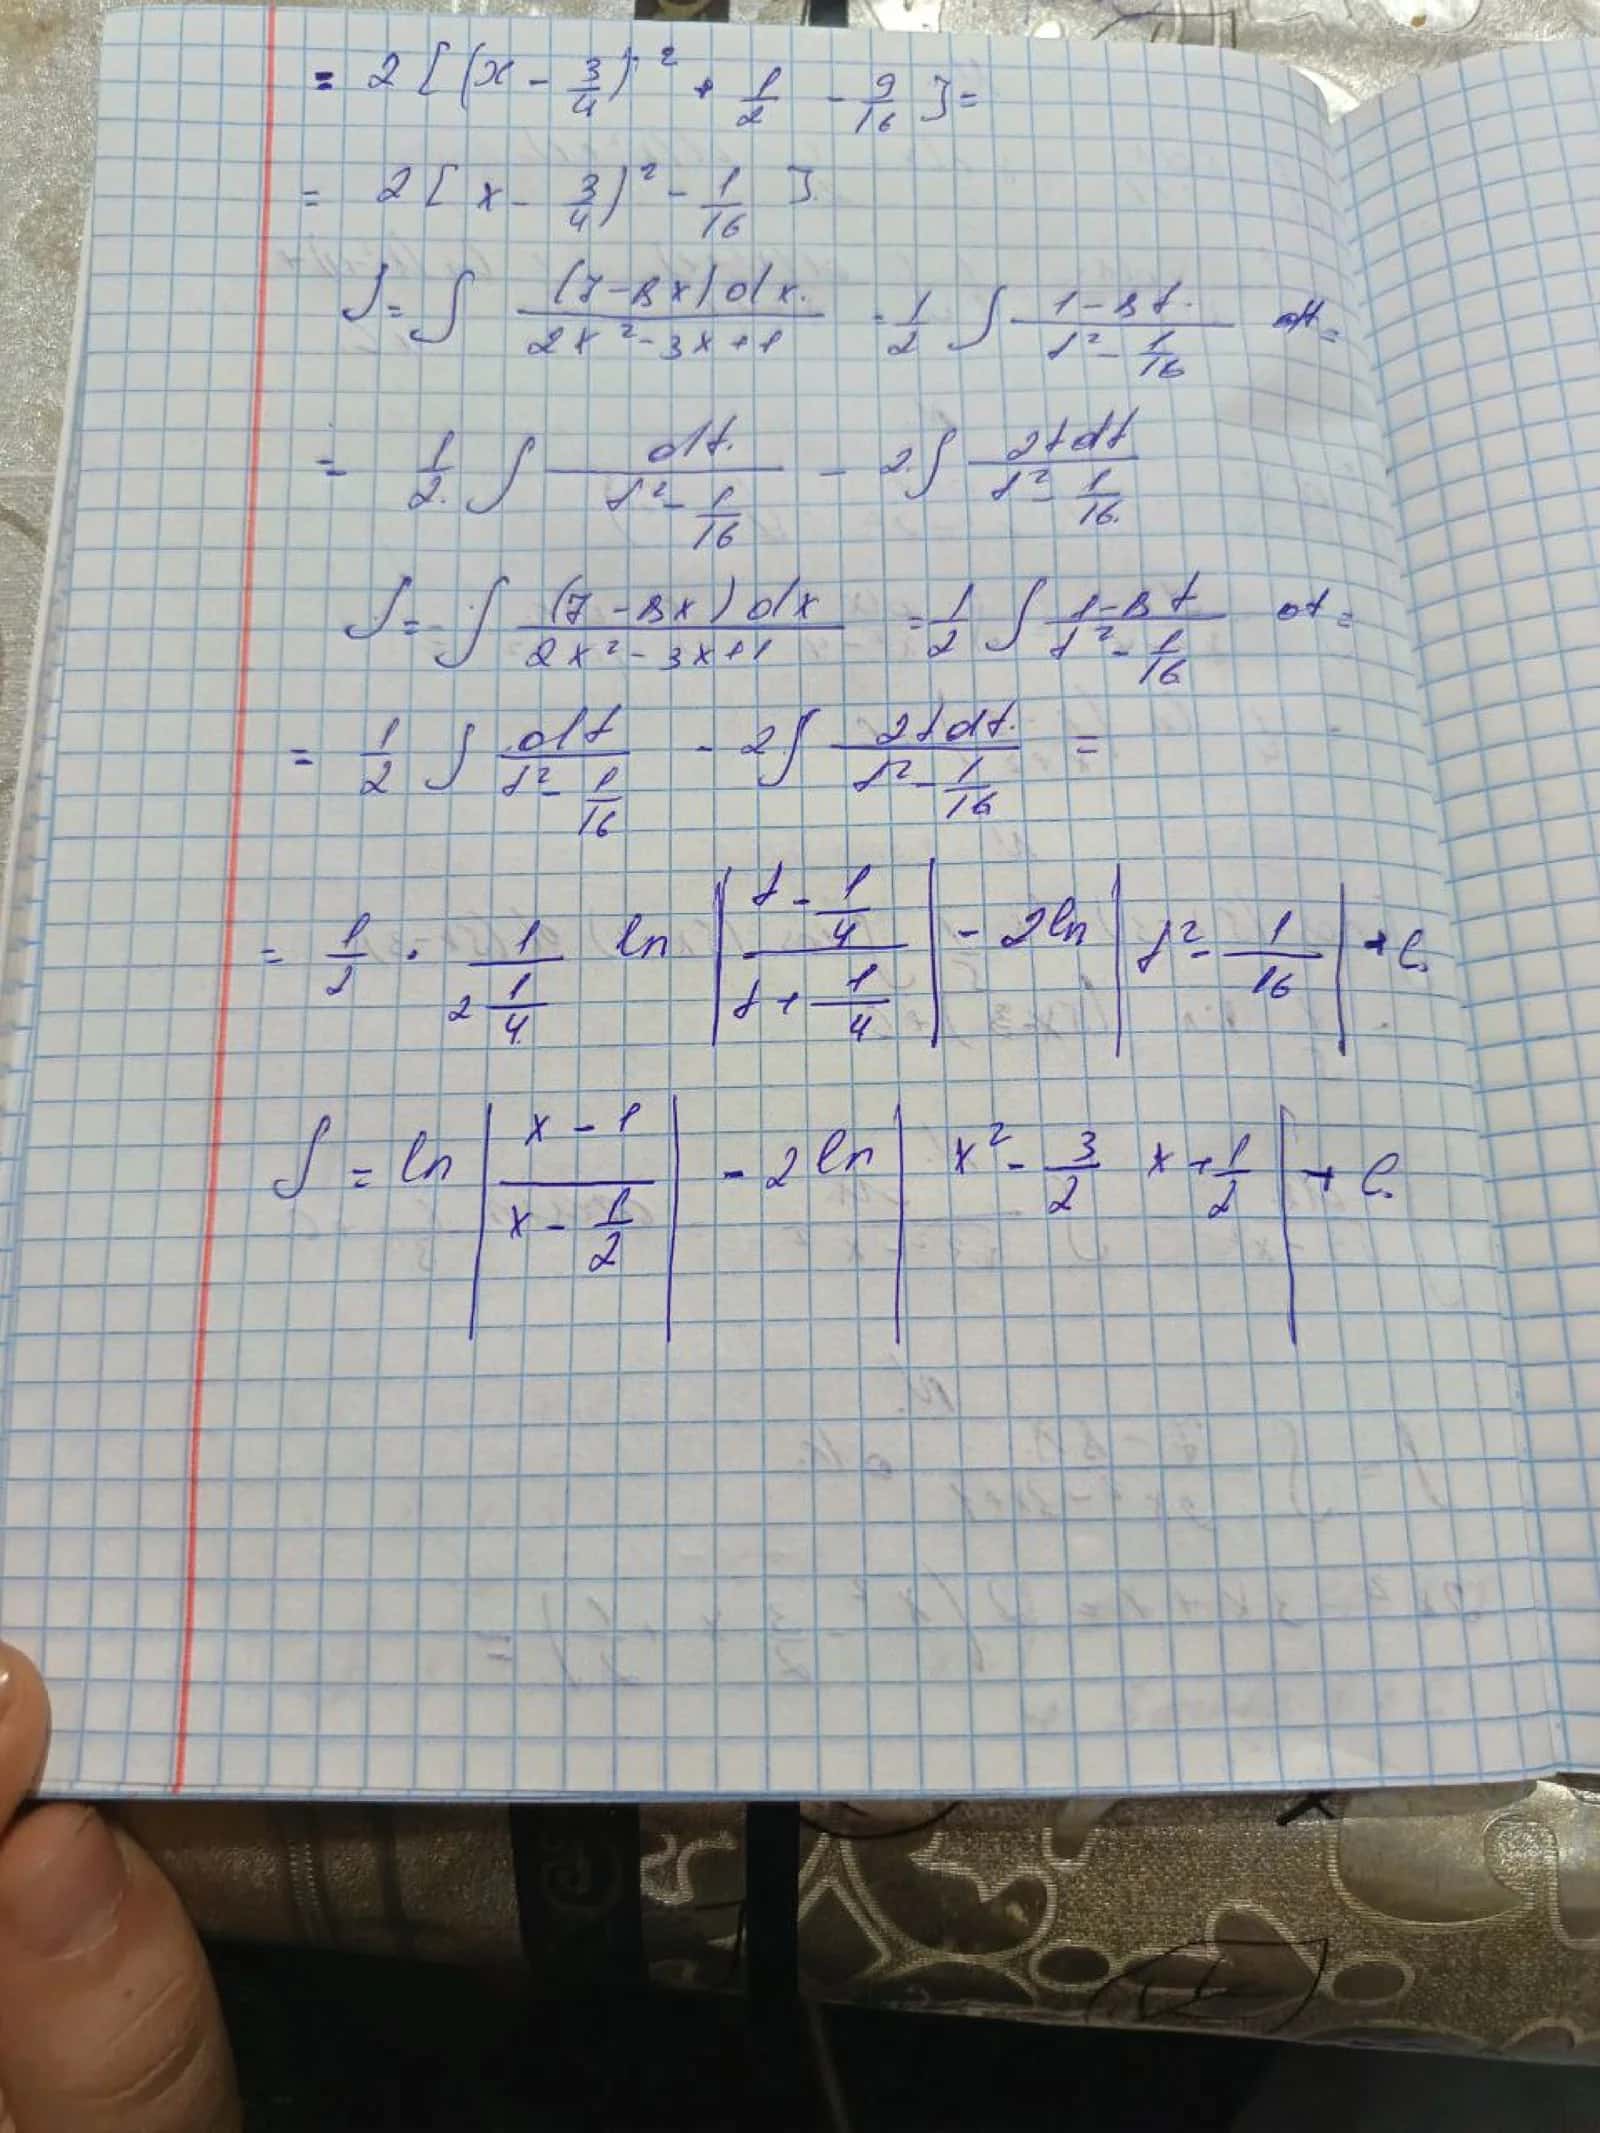 = 2 [ (x - 3/4)² + 1/2 - 9/16 ] =
= 2 [ x - 3/4)² - 1/16 ]
J = ∫ (7-8x)dx / 2x²-3x+1 = 1/2 ∫ 1-8t / t² - 1/16 dt =
= 1/2 ∫ dt / t² - 1/16 - 2∫ 2tdt / t² - 1/16
J = ∫ (7-8x)dx / 2x²-3x+1 = 1/2 ∫ 1-8t / t² - 1/16 dt =
= 1/2 ∫ dt / t² - 1/16 - 2∫ 2tdt / t² - 1/16 =
= 1/2 · 1 / 2 1/4 ln | t - 1/4 / t + 1/4 | - 2ln | t² - 1/16 | + C.
J = ln | x-1 / x - 1/2 | - 2ln | x² - 3/2 x + 1/2 | + C.